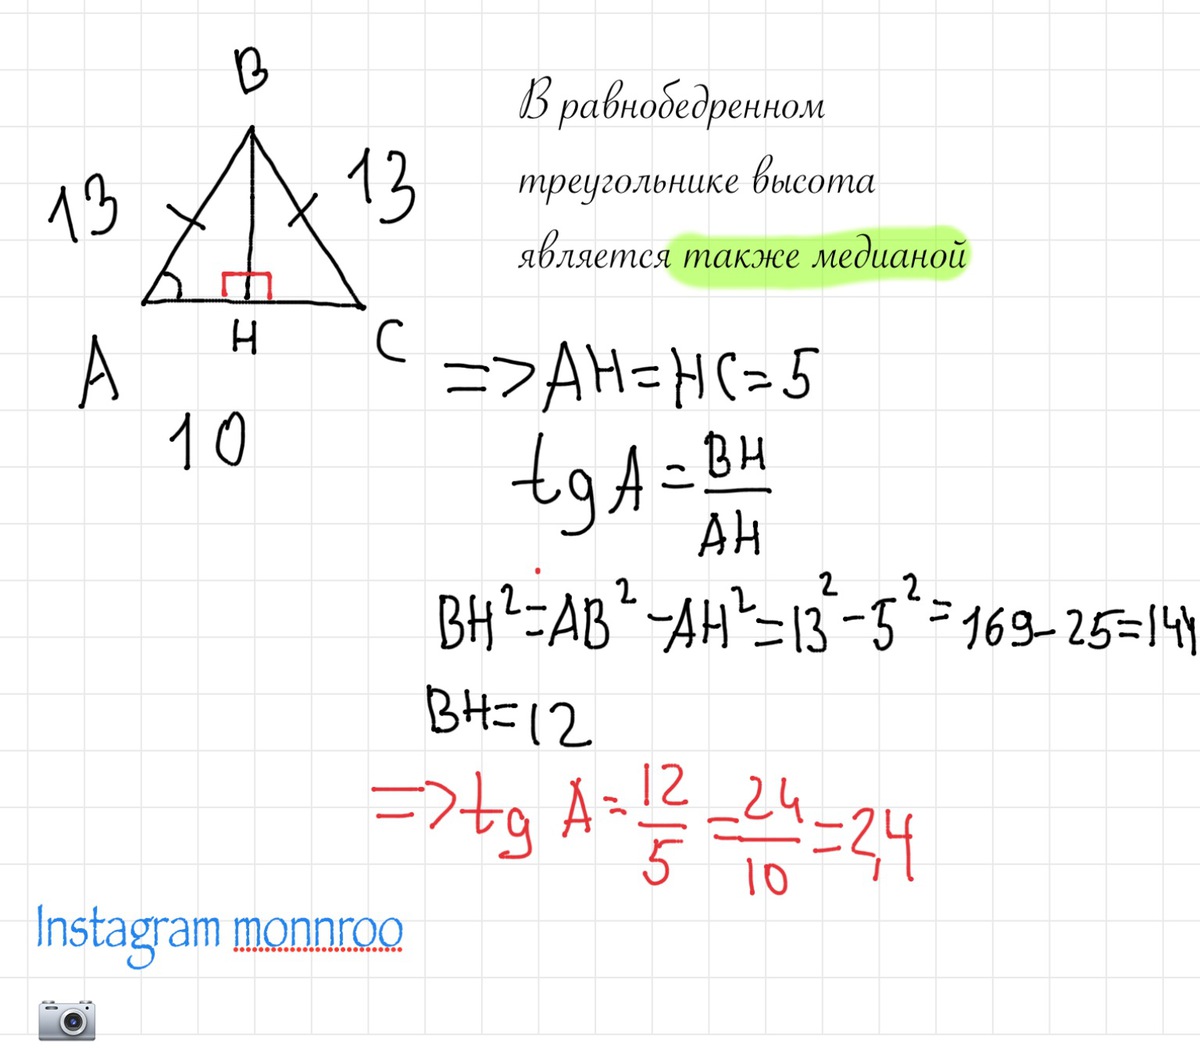 B
13
13
A
H
C
10
В равнобедренном
треугольнике высота
является также медианой
=> AH = HC = 5
tg A = BH/AH
BH² = AB² - AH² = 13² - 5² = 169 - 25 = 144
BH = 12
=> tg A = 12/5 = 24/10 = 2,4
Instagram monnroo